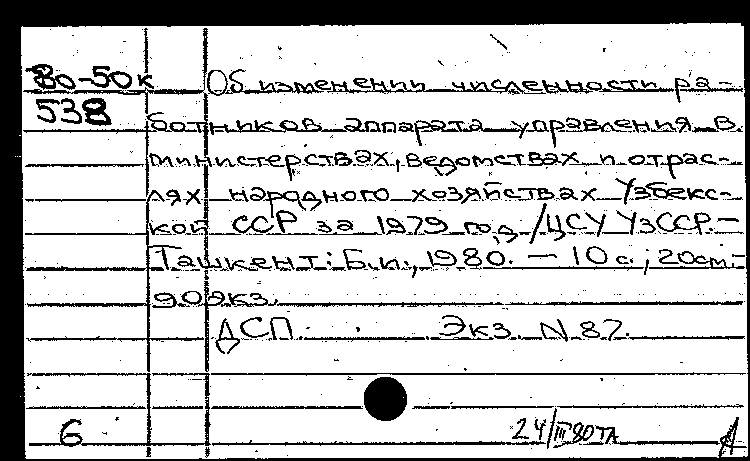 80-50к Об изменении численности ра-
538 ботников аппарата управления в
министерствах, ведомствах и отрас-
лях народного хозяйствах Узбекс-
кой ССР за 1979 год /ЦСУ УзССР. –
Ташкент: Б.и., 1980. – 10 с.; 20см –
90экз.
ДСП. Экз. N 87.
6 24/III 80 ТА